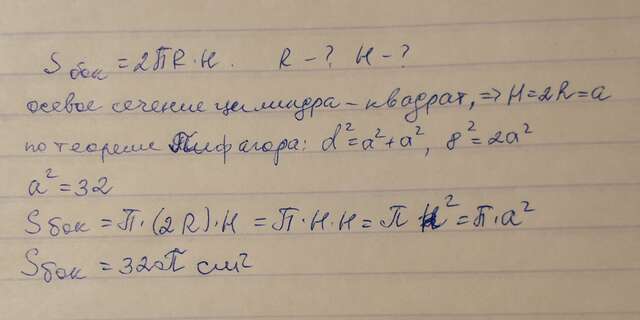 Sбок = 2πR·H. R – ? H – ?
осевое сечение цилиндра – квадрат, => H = 2R = a
по теореме Пифагора: d² = a² + a², 8² = 2a²
a² = 32
Sбок = π·(2R)·H = π·H·H = π H² = π·a²
Sбок = 32π см²